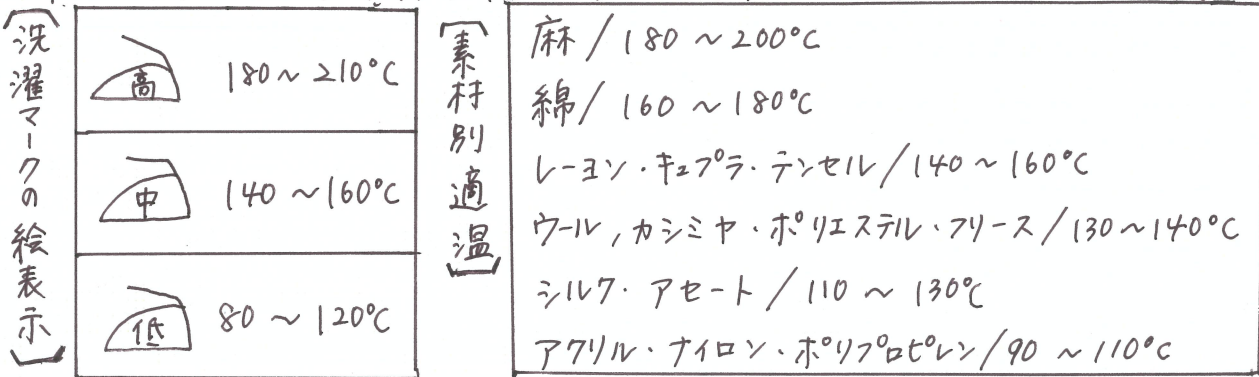 【洗濯マークの絵表示】
高 180~210℃
中 140~160℃
低 80~120℃
【素材別適温】
麻/180~200℃
綿/160~180℃
レーヨン・キュプラ・テンセル/140~160℃
ウール,カシミヤ・ポリエステル・フリース/130~140℃
シルク・アセート/110~130℃
アクリル・ナイロン・ポリプロピレン/90~110℃